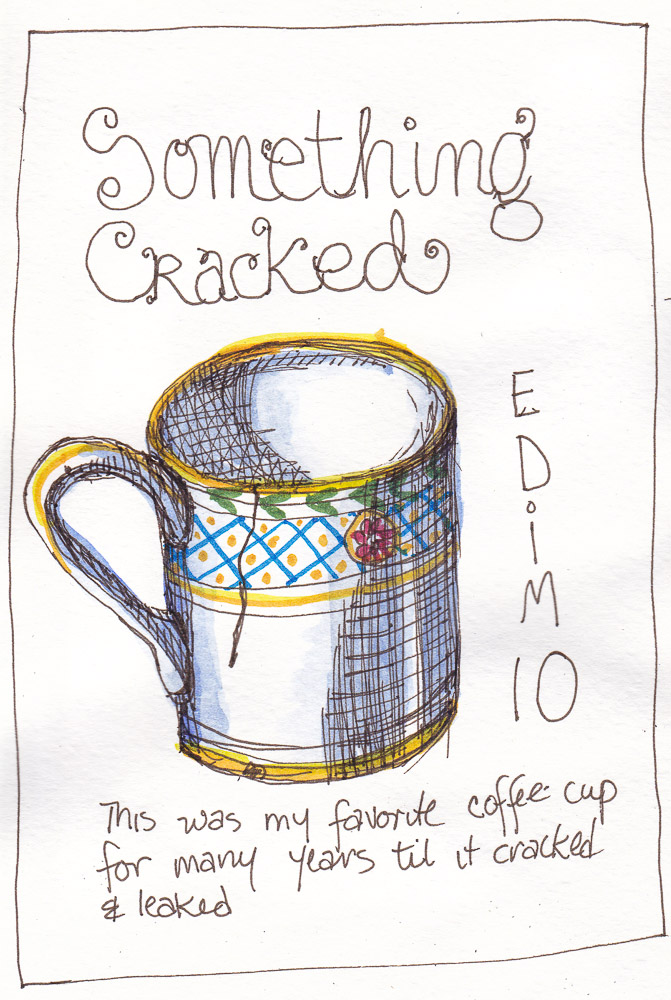 Something
Cracked
EDiM
10
This was my favorite coffee cup
for many years til it cracked
& leaked